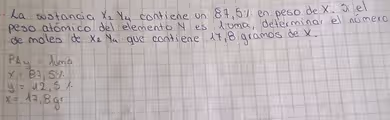 La sustancia X₂ Y₄ contiene un 87,5% en peso de X. Si el
peso atómico del elemento Y es 1uma, determinar el número
de moles de X₂ Y₄ que contiene 17,8 gramos de X.
PAy = 1uma
X = 87,5%
Y = 12,5 %
X = 17,8 gr